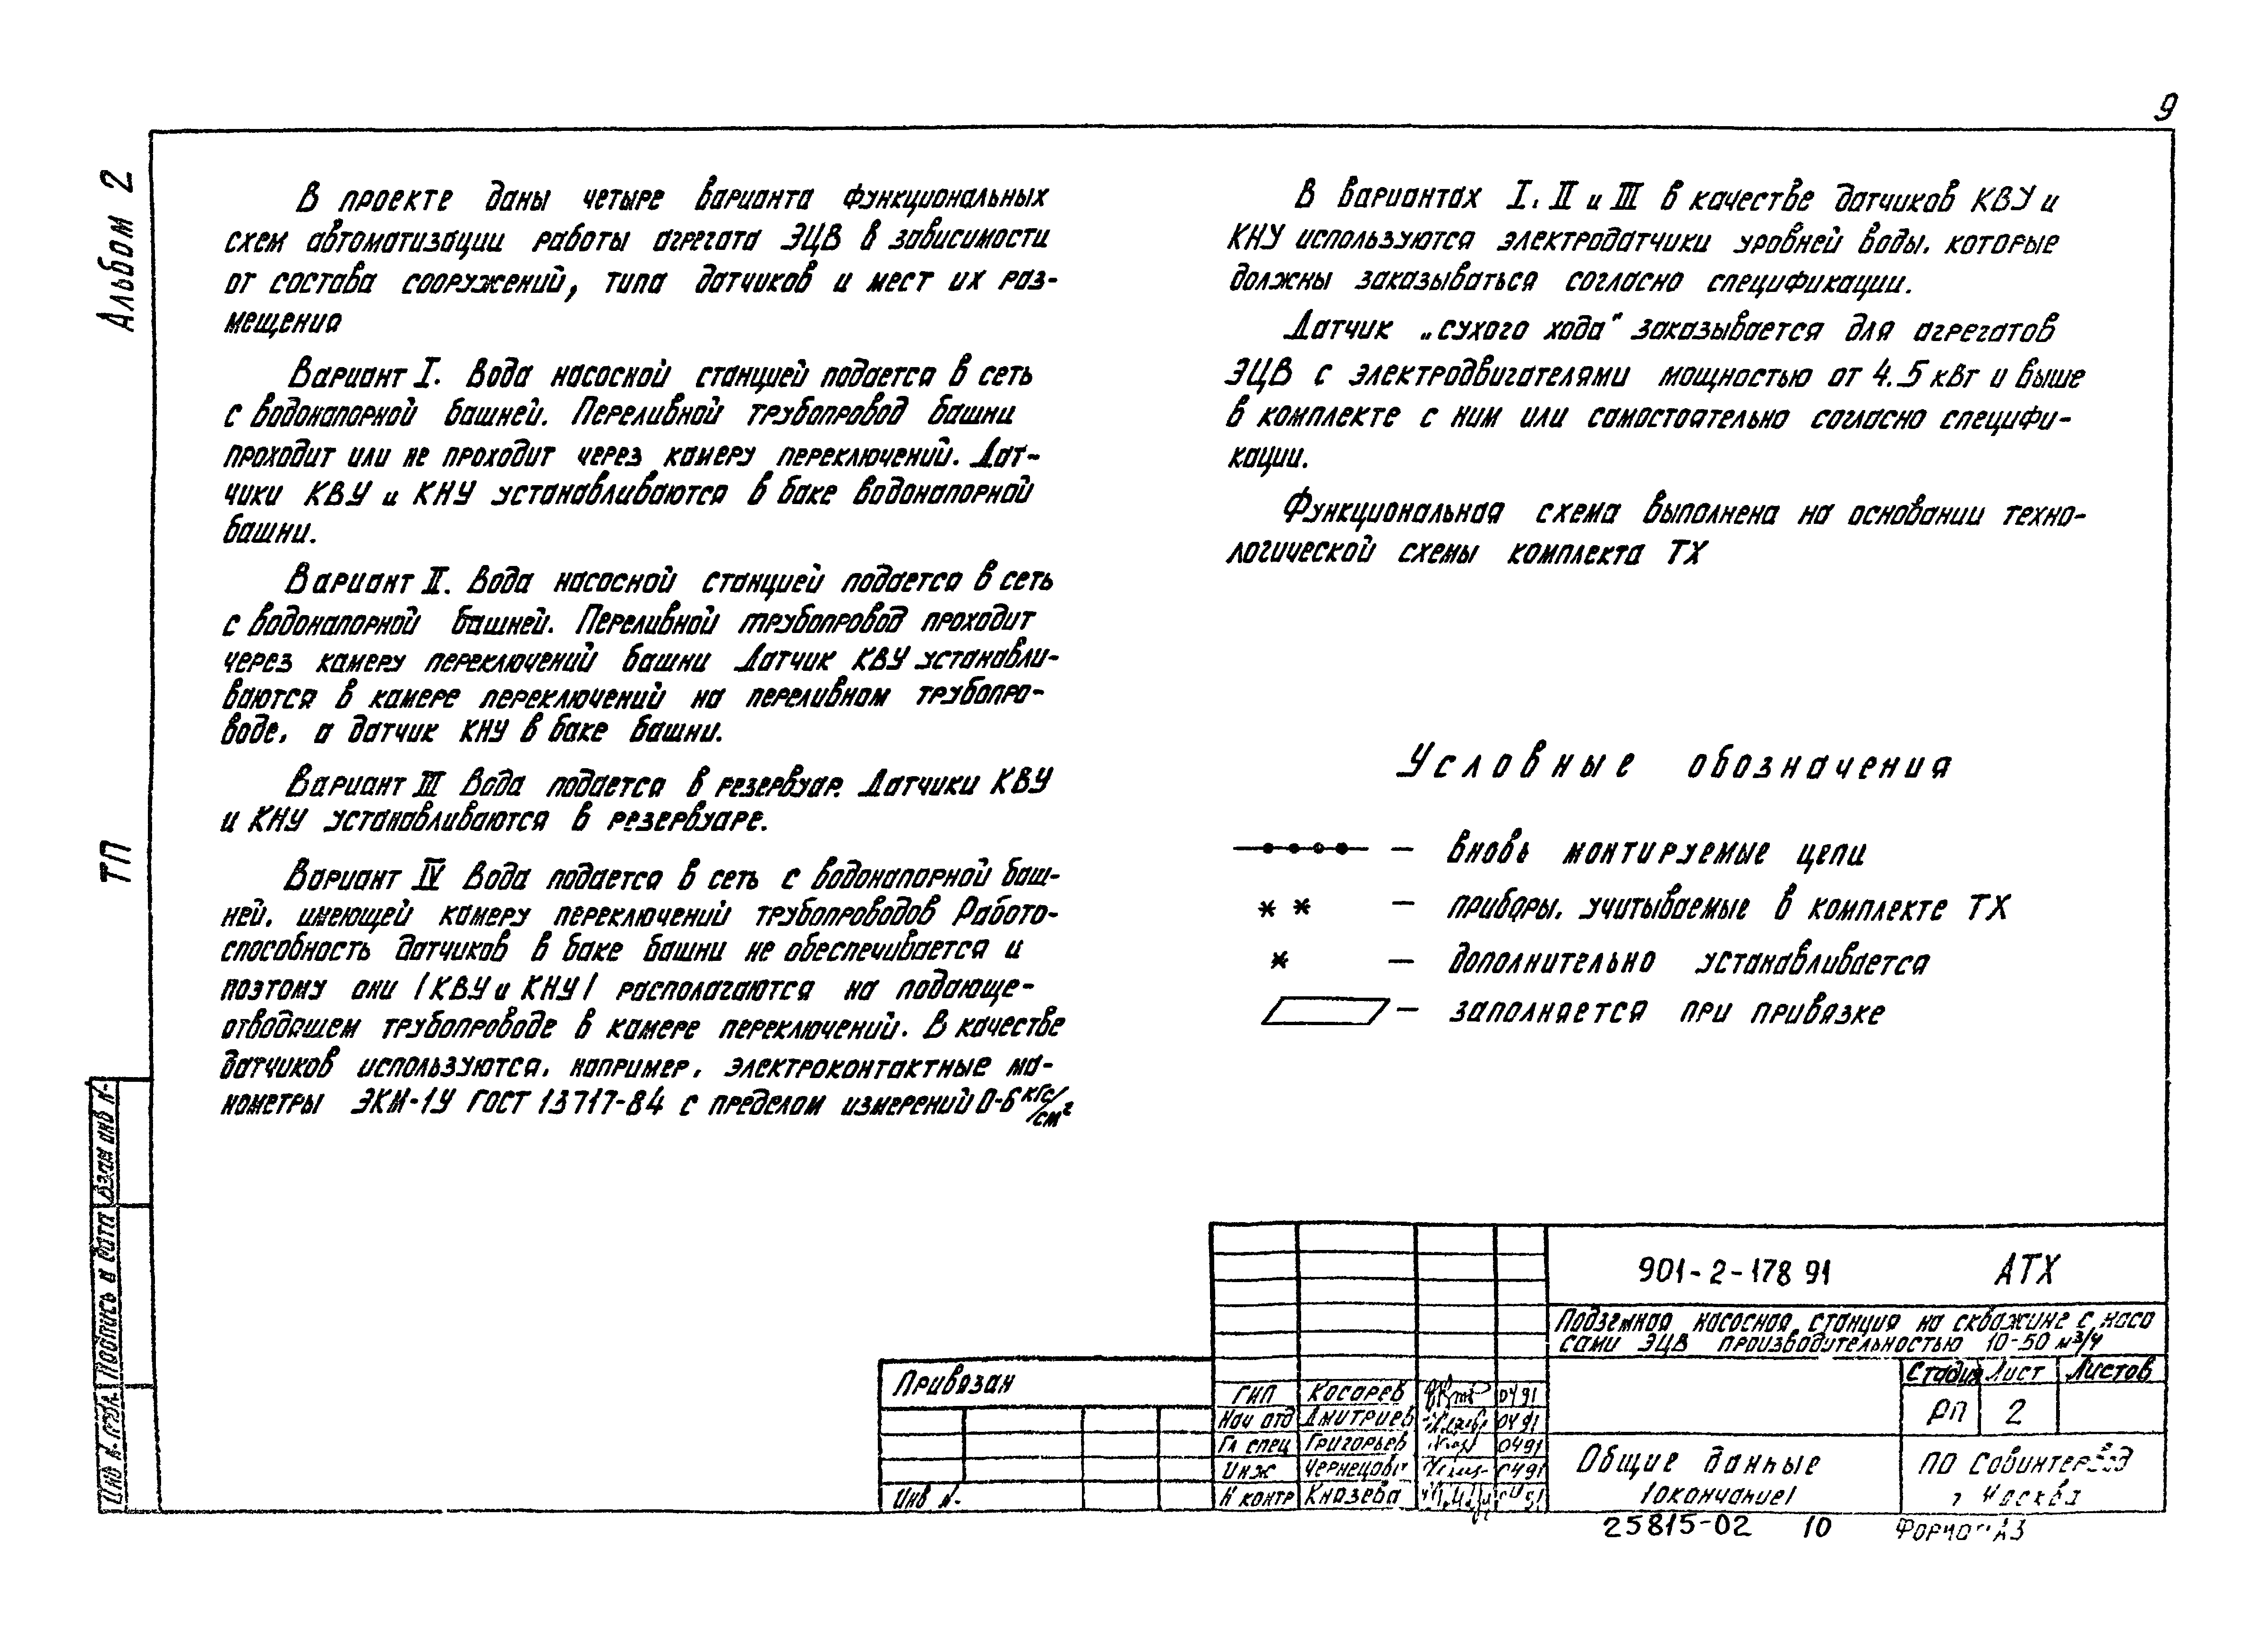 9
Альбом 2
ТП
В проекте даны четыре варианта функциональных
схем автоматизации работы агрегата ЭЦВ в зависимости
от состава сооружений, типа датчиков и мест их раз-
мещения
Вариант I. Вода насосной станцией подается в сеть
с водонапорной башней. Переливной трубопровод башни
проходит или не проходит через камеру переключений. Дат-
чики КВУ и КНУ устанавливаются в баке водонапорной
башни.
Вариант II. Вода насосной станцией подается в сеть
с водонапорной башней. Переливной трубопровод проходит
через камеру переключений башни Датчик КВУ устанавли-
ваются в камере переключений на переливном трубопро-
воде, а датчик КНУ в баке башни.
Вариант III Вода подается в резервуар. Датчики КВУ
и КНУ устанавливаются в резервуаре.
Вариант IV Вода подается в сеть с водонапорной баш-
ней, имеющей камеру переключений трубопроводов Работо-
способность датчиков в баке башни не обеспечивается и
поэтому они /КВУ и КНУ/ располагаются на подающе-
отводящем трубопроводе в камере переключений. В качестве
датчиков используются, например, электроконтактные ма-
нометры ЭКМ-1У ГОСТ 13717-84 с пределом измерений 0-6 кгс/см²
В вариантах I, II и III в качестве датчиков КВУ и
КНУ используются электродатчики уровней воды, которые
должны заказываться согласно спецификации.
Датчик „сухого хода" заказывается для агрегатов
ЭЦВ с электродвигателями мощностью от 4.5 кВт и выше
в комплекте с ним или самостоятельно согласно специфи-
кации.
Функциональная схема выполнена на основании техно-
логической схемы комплекта ТХ
Условные обозначения
— вновь монтируемые цепи
* * — приборы, учитываемые в комплекте ТХ
* — дополнительно устанавливается
— заполняется при привязке
Взам инв №
Подпись и дата
Инв № подл
Привязан
Инв №
901-2-178 91 АТХ
Подземная насосная станция на скважине с насо
сами ЭЦВ производительностью 10-50 м³/ч
Стадия Лист Листов
РП 2
ГИП Косарев 0491
Нач отд Дмитриев 0491
Гл спец Григорьев 0491
Инж Чернецова 0491
Н контр Князева
Общие данные
/окончание/
ПО Совинтервод
г Москва
25815-02 10 Формат А3